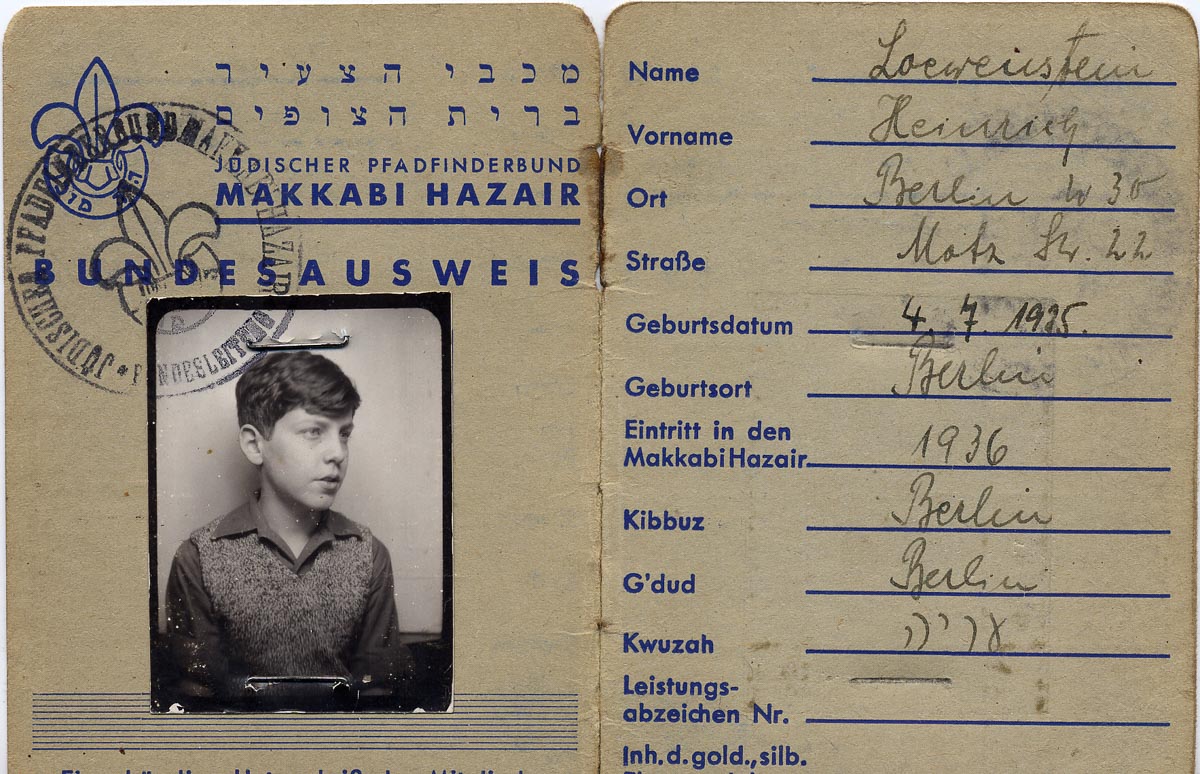 מכבי הצעיר
ברית הצופים
JÜDISCHER PFADFINDERBUND
MAKKABI HAZAIR
BUNDESAUSWEIS
JÜDISCHER PFADFINDERBUND MAKKABI HAZAIR
Name Loewenstein
Vorname Heinrich
Ort Berlin W 30
Straße Motz Str. 22
Geburtsdatum 4. 7. 1925.
Geburtsort Berlin
Eintritt in den
Makkabi Hazair 1936
Kibbuz Berlin
G'dud Berlin
Kwuzah
Leistungs-
abzeichen Nr.
Inh. d. gold., silb.